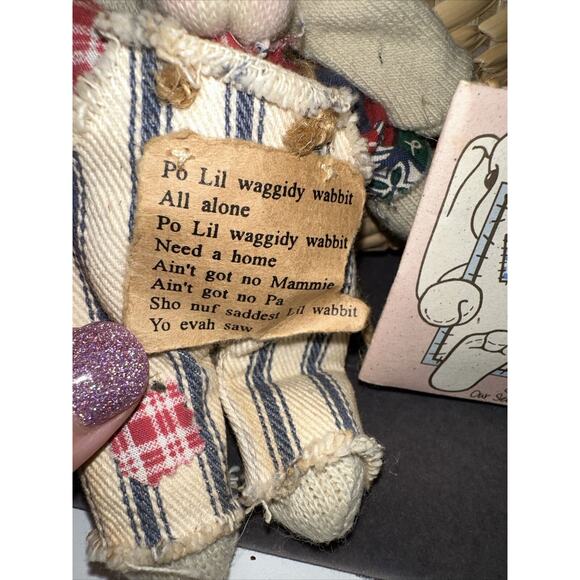 Po Lil waggidy wabbit
All alone
Po Lil waggidy wabbit
Need a home
Ain't got no Mammie
Ain't got no Pa
Sho nuf saddest Lil wabbit
Yo evah saw
Our